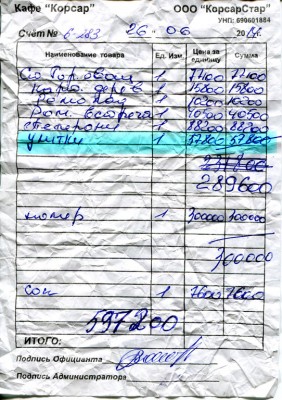 Кафе "Корсар" ООО "КорсарСтар"
УНП: 690601884
Счёт № 26-06 20
Наименование товара Ед. Изм. Цена за единицу Сумма
1 77100 77100
1 15800 15800
1 10200 10200
встреча 1 40500 40500
1 88200 88200
улитки 1 57800 57800
289600
номер 1 300000 300000
300000
сок 1 7600 7600
597200
ИТОГО:
Подпись Официанта
Подпись Администратора